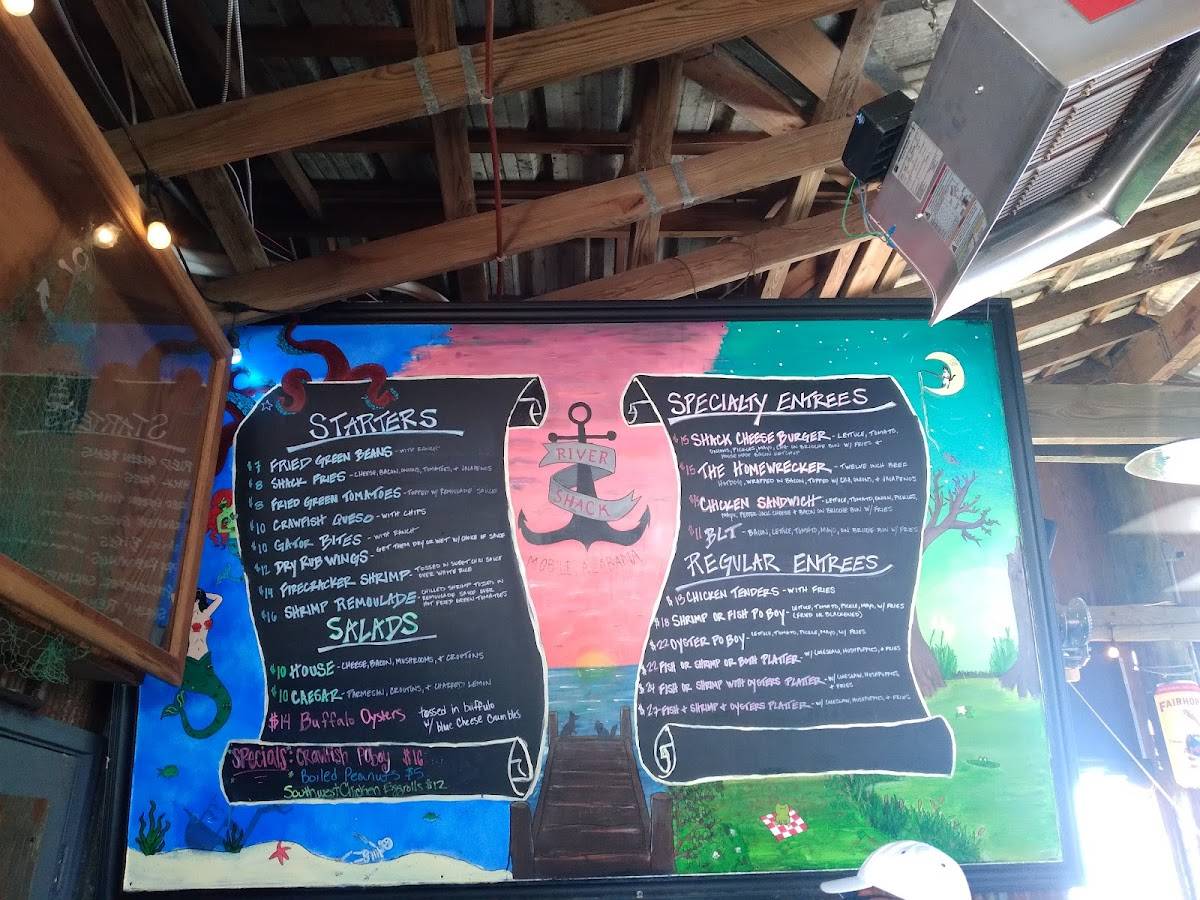 STARTERS
$7 FRIED GREEN BEANS - WITH RANCH
$8 SHACK FRIES - CHEESE, BACON, ONIONS, TOMATOES, + JALAPENOS
$8 FRIED GREEN TOMATOES - TOPPED W/ REMOULADE SAUCE
$10 CRAWFISH QUESO - WITH CHIPS
$10 GATOR BITES - WITH RANCH
$12 DRY RUB WINGS - GET THEM DRY OR WET W/ CHOICE OF SAUCE
$14 FIRECRACKER SHRIMP - TOSSED IN SWEET CHILI SAUCE
OVER WHITE RICE
$16 SHRIMP REMOULADE - CHILLED SHRIMP TOSSED IN
REMOULADE SAUCE OVER
HOT FRIED GREEN TOMATOES
SALADS
$10 HOUSE - CHEESE, BACON, MUSHROOMS, & CROUTONS
$10 CAESAR - PARMESIN, CROUTINS, + CHARRED LEMON
$14 Buffalo Oysters tossed in buffulo
w/ blue cheese crumbles
Specials: Crawfish Poboy $16
* Boiled Peanuts $5
Southwest Chicken Eggrolls $12
RIVER
SHACK
MOBILE, ALABAMA
SPECIALTY ENTREES
$15 SHACK CHEESE BURGER - LETTUCE, TOMATO,
ONIONS, PICKLES, MAYO, ON BRIOCHE BUN W/ FRIES +
HOUSE MADE BACON KETCHUP
$15 THE HOMEWRECKER - TWELVE INCH BEEF
HOTDOG, WRAPPED IN BACON, TOPPED W/ CHILI, ONIONS, + JALAPENOS
CHICKEN SANDWICH - LETTUCE, TOMATO, ONION, PICKLES,
MAYO, PEPPER JACK CHEESE & BACON ON BRIOCHE BUN W/ FRIES
$11 BLT - BACON, LETTUCE, TOMATO, MAYO, ON BRIOCHE BUN W/ FRIES
REGULAR ENTREES
$13 CHICKEN TENDERS - WITH FRIES
$18 SHRIMP OR FISH PO BOY - LETTUCE, TOMATO, PICKLE, MAYO, W/ FRIES
(FRIED OR BLACKENED)
$22 OYSTER PO BOY - LETTUCE, TOMATO, PICKLE, MAYO, W/ FRIES
$22 FISH OR SHRIMP OR BOTH PLATTER - W/ COLESLAW, HUSHPUPPIES, & FRIES
$24 FISH OR SHRIMP WITH OYSTERS PLATTER - W/ COLESLAW, HUSHPUPPIES,
+ FRIES
$27 FISH + SHRIMP + OYSTERS PLATTER - W/ COLESLAW, HUSHPUPPIES, + FRIES
FAIRHOPE